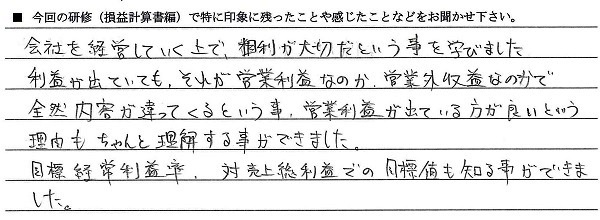 ■ 今回の研修（損益計算書編）で特に印象に残ったことや感じたことなどをお聞かせ下さい。
会社を経営していく上で、粗利が大切だという事を学びました
利益が出ていても、それが営業利益なのか、営業外収益なのかで
全然内容が違ってくるという事、営業利益が出ている方が良いという
理由もちゃんと理解する事ができました。
目標経常利益率、対売上総利益での目標値も知る事ができま
した。